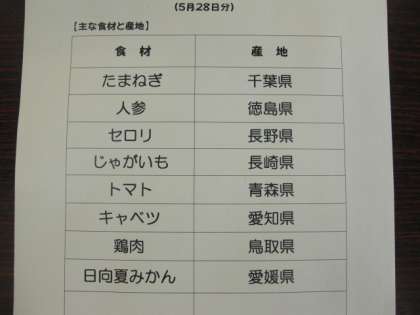 (5月28日分)
【主な食材と産地】
食 材 産 地
たまねぎ 千葉県
人参 徳島県
セロリ 長野県
じゃがいも 長崎県
トマト 青森県
キャベツ 愛知県
鶏肉 鳥取県
日向夏みかん 愛媛県